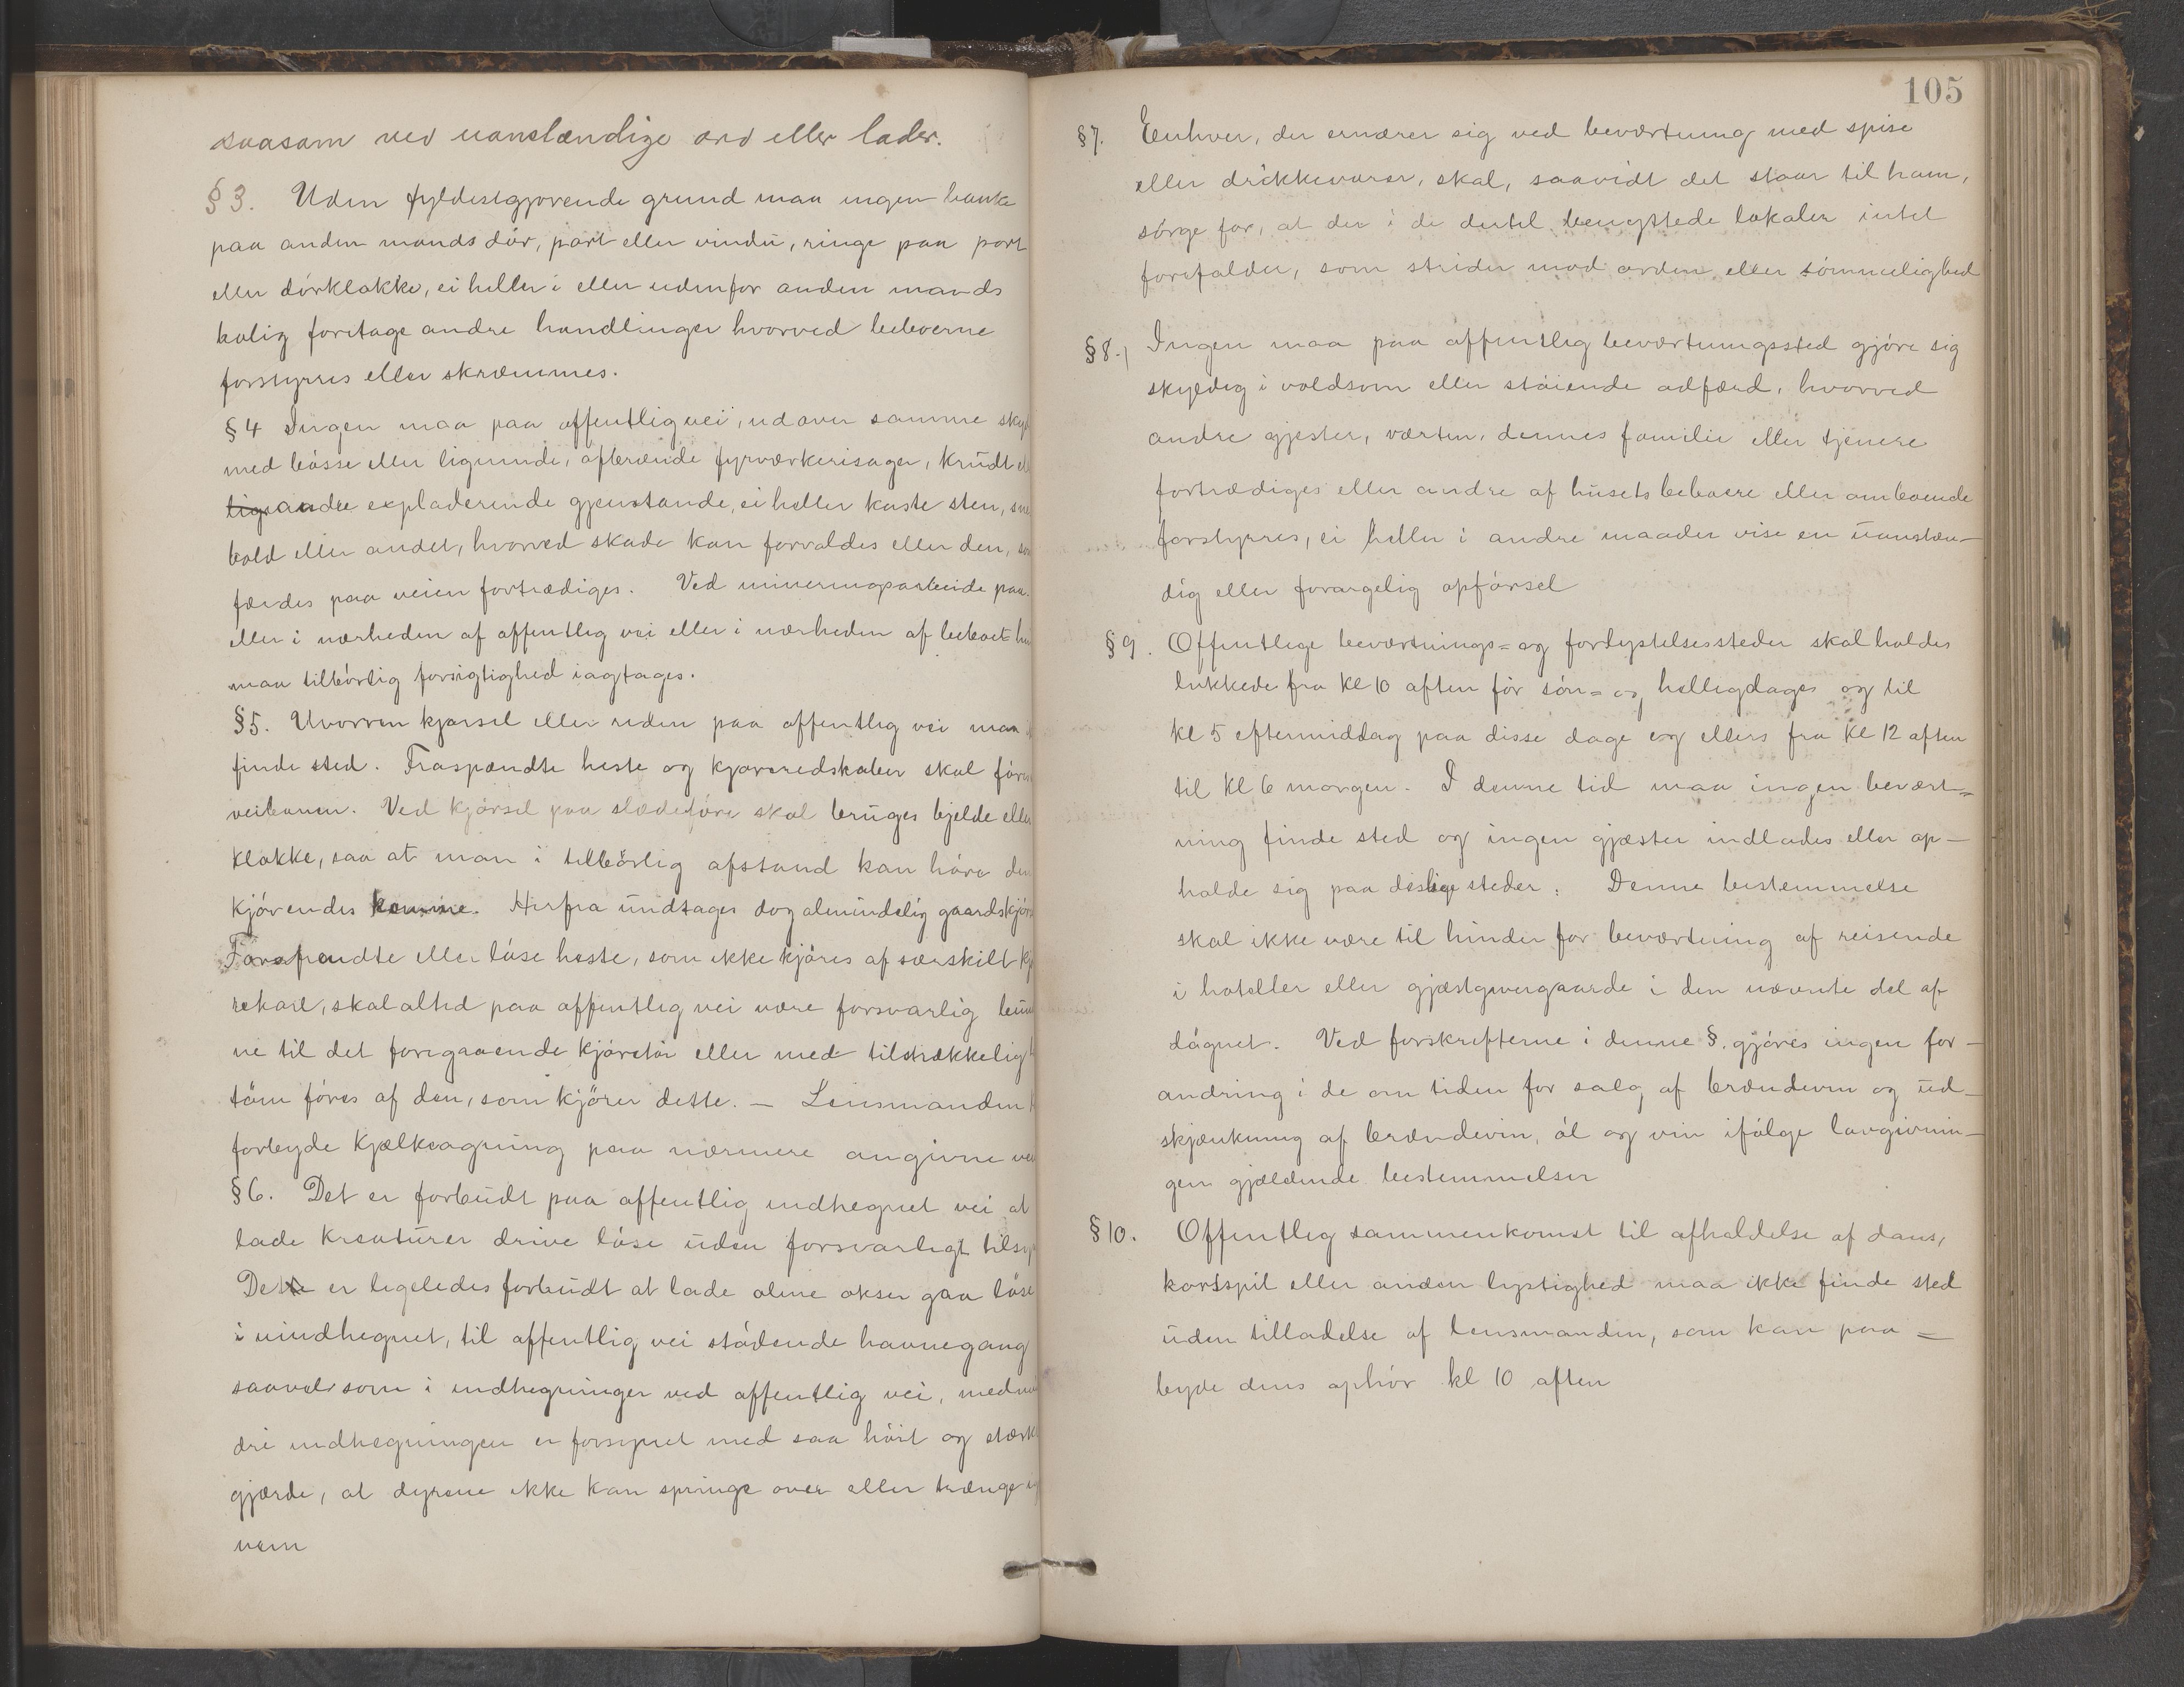 saasom ved uanstændige ord eller lader.
§3. Uden fyldestgjørende grund maa ingen banke
paa anden mands dør, port eller vindu, ringe paa port
eller dørklokke, ei heller i eller udenfor anden mands
bolig foretage andre handlinger hvorved beboerne
forstyrres eller skræmmes.
§4 Ingen maa paa offentlig vei, ud over samme
med bøsse eller lignende, afbrænde fyrværkerisager, krudt
lig andre exploderende gjenstande, ei heller kaste sten,
bold eller andet, hvorved skade kan forvoldes eller den,
færdes paa veien fortrædiges. Ved mineringsarbeide paa
eller i nærheden af offentlig vei eller i nærheden af beboet
maa tilbørlig forsigtighed iagtages.
§5. Uvorren kjørsel eller riden paa offentlig vei maa
finde sted. Fraspændte heste og kjøreredskaber skal
veibanen. Ved kjørsel paa slædeføre skal bruges bjelde eller
klokke, saa at man i tilbørlig afstand kan høre den
kjørendes komme. Herfra undtages dog almindelig
Foraspendte eller løse heste, som ikke kjøres af særskilt
rekarl, skal altid paa offentlig vei være forsvarlig
ne til det foregaaende kjøretøi eller med tilstrækkelig
tøm føres af den, som kjører dette. — Lensmanden
forbyde kjælkeagning paa nærmere angivne
§6. Det er forbudt paa offentlig indhegnet vei at
lade kreaturer drive løse uden forsvarligt
Det er ligeledes forbudt at lade olme okser gaa løse
i uindhegnet, til offentlig vei stødende havnegang
saavelsom i indhegninger ved offentlig vei,
dre indhegningen er forsynet med saa høit og stærkt
gjærde, at dyrene ikke kan springe over eller trænge
nem
105
§7. Enhver, der ernærer sig ved beværtning med spise
eller drikkevarer, skal, saavidt det staar til ham,
sørge for, at der i de dertil benyttede lokaler intet
forefalder, som strider mod orden eller sømmelighed
§8. Ingen maa paa offentlig beværtningssted gjøre sig
skyldig i voldsom eller støiende adfærd, hvorved
andre gjester, værten, dennes familie eller tjenere
fortrædiges eller andre af husets beboere eller omboende
forstyrres, ei heller i andre maader vise en uanstæn-
dig eller forargelig opførsel
§9. Offentlige beværtnings= og forlystelsessteder skal holdes
lukkede fra kl 10 aften før søn= og helligdage og til
kl 5 eftermiddag paa disse dage og ellers fra kl 12 aften
til kl 6 morgen. I denne tid maa ingen bevært=
ning finde sted og ingen gjæster indlades eller op-
holde sig paa deslige steder. Denne bestemmelse
skal ikke være til hinder for beværtning af reisende
i hoteller eller gjæstgivergaarde i den nævnte del af
døgnet. Ved forskrifterne i denne §. gjøres ingen for-
andring i de om tiden for salg af brændevin og ud-
skjænkning af brændevin, øl og vin ifølge lovgivnin-
gen gjældende bestemmelser
§10. Offentlig sammenkomst til afholdelse af dans,
kortspil eller anden lystighed maa ikke finde sted
uden tilladelse af lensmanden, som kan paa=
byde dens ophør kl 10 aften